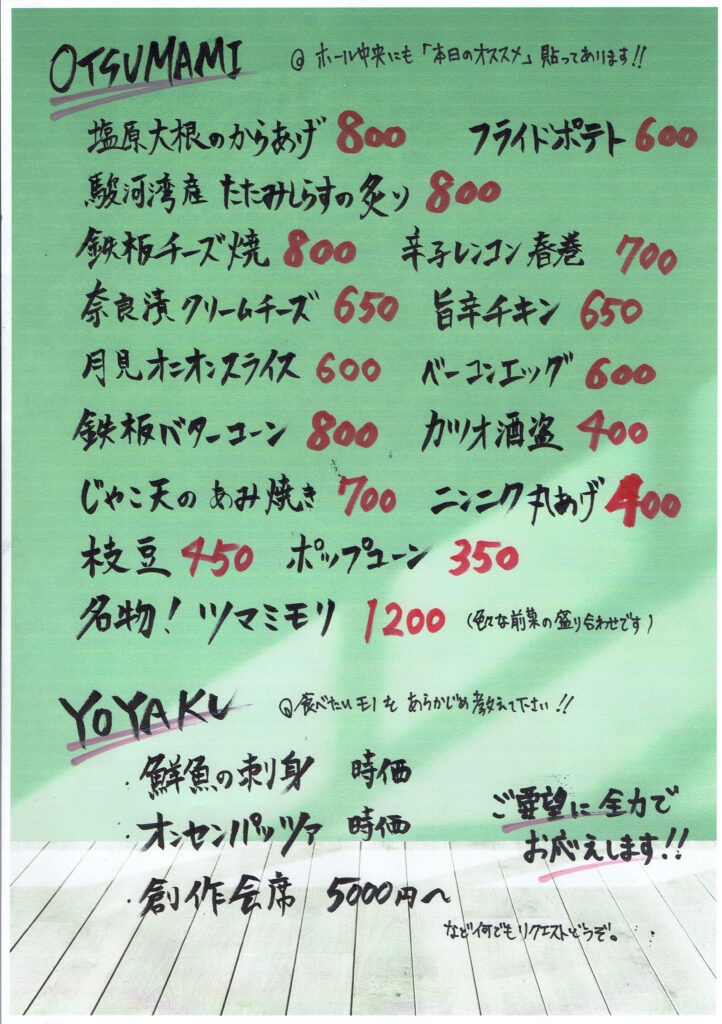 OTSUMAMI @ ホール中央にも「本日のオススメ」貼ってあります!!
塩原大根のからあげ 800 フライドポテト 600
駿河湾産 たたみしらすの炙り 800
鉄板チーズ焼 800 辛子レンコン春巻 700
奈良漬クリームチーズ 650 旨辛チキン 650
月見オニオンスライス 600 ベーコンエッグ 600
鉄板バターコーン 800 カツオ酒盗 400
じゃこ天のあみ焼き 700 ニンニク丸あげ 400
枝豆 450 ポップコーン 350
名物! ツマミモリ 1200 (色々な前菜の盛り合わせです)
YOYAKU @食べたいモノを あらかじめ教えて下さい!!
・鮮魚の刺身 時価
・オンセンパッツァ 時価
・創作会席 5000円〜
ご要望に全力で
お応えします!!
など何でもリクエストどうぞ。